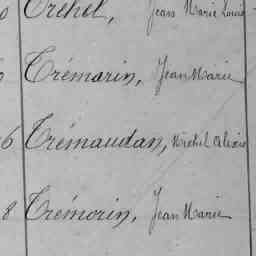 0 Tréhel, Jean Marie Louis
Trémarin, Jean Marie
6 Trémaudan, Michel Alexis
8 Trémorin, Jean Marie